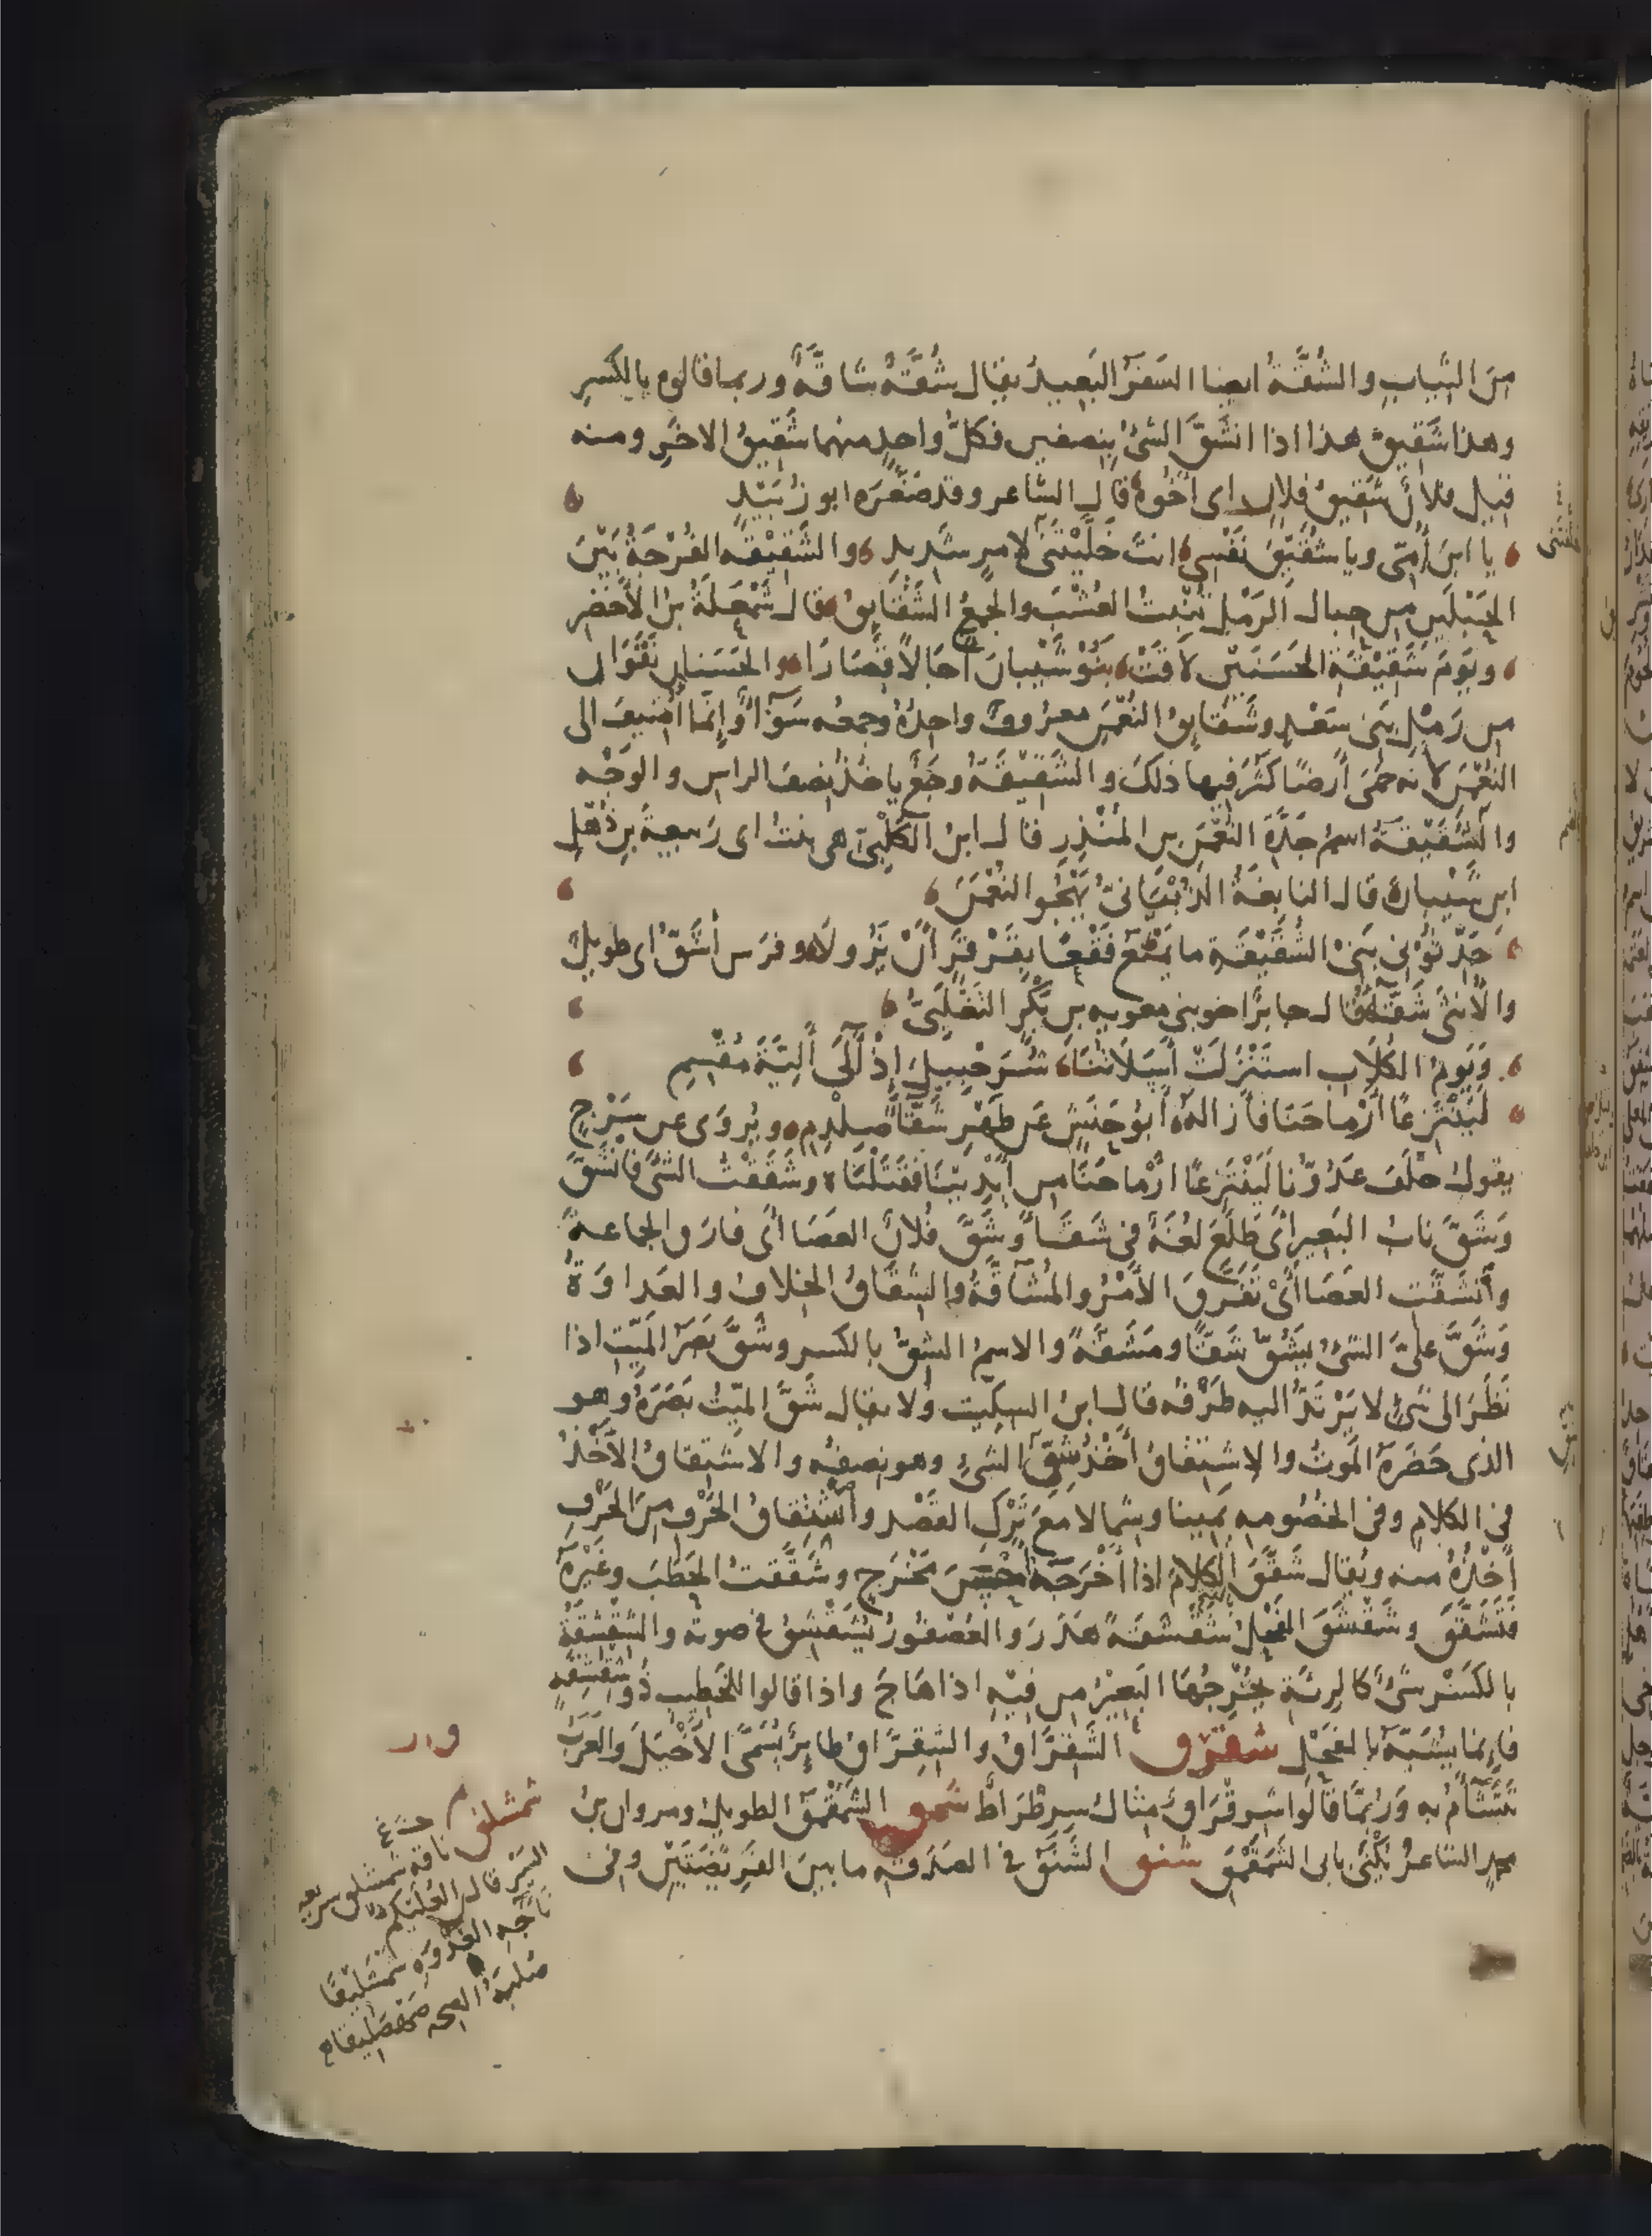 من الثياب والشُّقَّةُ ايضا السَفَرُ البَعِيدُ يقال شُقَّةٌ شاقَّةٌ وربما قالوه بالكسرِ
وهذا شَقِيقُ هذا اذا انشَقَّ الشئُ بنصفين فكلُّ واحدٍ منهما شَقِيقُ الاخَرِ ومنه
قيل فلانٌ شَقِيقُ فلانٍ اى أخُوهُ قال الشاعر وقد صَغَّرَه ابو زُبَيْدٍ
يا ابنَ أُمّى ويا شُقَيِّقَ نَفْسِي انتَ خَلَّيْتَنِى لامرٍ شَدِيدِ والشَقِيْقَه الفُرْجَةُ بَيْنَ
الحَبْلَينِ من حبال الرَمْلِ تُنْبِتُ العُشْبَ والجمعُ الشَقَايِقُ قال شَمْعَلَةُ بنُ الأَخْضَرِ
ويَوْمَ شَقِيْقَةِ الحَسَنَيْنِ لاقَتْ بَنُوْ شَيْبانَ آجَالاً قِصَارَا والحَسَنانِ نَقَوَانِ
من رَمْلِ بَنِى سَعْدٍ وشَقَايِقُ النُعْمٰنِ معرُوفٌ واحِدُهُ وجمعُه سَوَآءٌ وإِنَّما أُضِيفَ الى
النُعْمٰنِ لانه حَمَى أَرضًا كَثُرَ فيها ذلكَ والشَقِيْقَةُ وجَعٌ ياخذُ نِصفَ الراس والوَجْه
والشَّقِيْقَةُ اسمُ جَدَّةِ النُعْمٰنِ بن المُنْذِرِ قال ابنُ الكَلْبِىّ هى بنتُ ابى رَبِيعةَ بنِ ذُهْلِ
ابن شَيْبانَ قال النابِغَةُ الذُبْيَانىُّ يَهْجُو النُعْمٰنَ
حَدِّثُوْنِى بَنِىْ الشَقِيْقَةِ ما يَمْنَعُ فَقْعًا بِقَرْقَرٍ أَنْ يَزُولَا وفَرَس أَشَقُّ اى طوِيلٌ
والأُنثَى شَقَّاءُ قال جابرٌ اخو بنى معٰويه بن بَكْرٍ التَغْلَبِىُّ
وَيَوْمَ الكُلَابِ استَنْزَلَتْ أَسَلَاتُنَا شُرَحْبِيلَ إِذْ آلَى أَلِيَّةَ مُقْسِمِ
لَيَنْتَزِعًا أَرْماحَنَا فَأَزَالَهُ أَبُو حَنَشٍ عَن ظَهْرِ شَقَّاءَ صِلْدِمِ ويُروَى عن سَرْجٍ
يقول حَلَفَ عَدُوُّنا لَيَنْتَزِعًا ارْماحَنَا من أَيْدِيْنَا فقَتَلْنَاه وشَقَقْتُ الشئَ فانْشَقَّ
وَشَقَّ نابُ البَعِيرِ اىْ طَلَعَ لغةٌ فى شَقَأَ وشَقَّ فُلانٌ العصَا اىْ فارَق الجماعةَ
وأنشَقَّتِ العصَا اىْ تَفَرَّقَ الأَمْرُ والمُشاقَّةُ والشِقَاقُ الخِلافُ والعَداوَةُ
وَشَقَّ علىَّ الشئُ يَشُقُّ شَقًّا ومَشَقَّةً والاسمُ الشِقُّ بالكسرِ وشَقَّ بَصَرُ المَيِّتِ اذا
نَظَرَ الى شَئٍ لا يَرْتَدُّ اليه طَرْفُه قال ابنُ السِكِّيت ولا يقال شَقَّ الميّتُ بَصَرَهُ وهو
الذى حَضَرَهُ المَوتُ والاِشتِقاقُ أَخْذُ شِقِّ الشئِ وهو نِصفُه والاشتِقاقُ الأَخْذُ
فى الكلامِ وفى الخُصُومه يَمِينا وشِمالا مَعَ تَرْكِ القَصْدِ وأشتِقاقُ الحَرْفِ مِنَ الحَرْفِ
أَخْذُهُ منه ويُقال شَقَّقَ الكلامَ اذا أَخْرَجَهُ أَحْسَنَ مَخْرَجٍ وشَقَّقتُ الحَطَبَ وغَيْرَهُ
فَتَشَقَّقَ وشَقْشَقَ الفَحْلُ شَقْشَقَةً هَدَرَ والعُصْفُورُ يُشَقْشِقُ فى صوته والشِقْشِقَةُ
بالكَسْرِ شَئٌ كالرِئَةِ يُخْرِجُهَا البَعِيْرُ من فِيْهِ اذا هَاجَ واذا قالوا للخَطِيبِ ذُو شِقْشِقَةٍ
فإِنما يُشَبَّهُ بالفَحْلِ شقرق الشَقِرَّاقُ والشِقِرَّاقُ طايِرٌ يُسَمَّى الأَخْيَلَ والعَرَبُ
تَتَشَأَّمُ به وَرُبَّمَا قَالُوا شِرِقْرَاقٌ مثال سِرِطْرَاطٍ شمق الشَمَقْمَقُ الطويل ومروان بنُ
محمدٍ الشاعرُ يُكْنَى بابى الشَمَقْمَقِ شنق الشَنَقُ فى الصَدَقَه ما بين الفَرِيضَتَيْنِ وفى
شمشلق
ناقه شمشلق سريعه